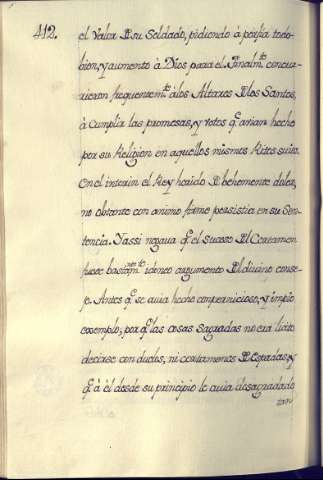 412.
el valor de su Soldado, pidiendo à porfia todo
bien, y aumento à Dios para el. Finalmte. concur-
rieron frequentemte. à los Altares de los Santos,
à cumplir las promesas, y votos q̃ avian hecho
por su Religion en aquellos mismos Rites suios.
En el interin el Rey herido de behemente dolor,
no obstante con animo firme persistia en su Sen-
tencia. Y assi negava q̃ el suceso del Certamen
fuese bastantemte. idoneo argumento del divino conse-
jo. Antes q̃ se avia hecho con pernicioso, y impio
exemplo; porq̃ las cosas Sagradas no era licito
decirse con duelos, ni certamenes de Espadas; y
q̃ à él desde su principio le avia desagradado
tan